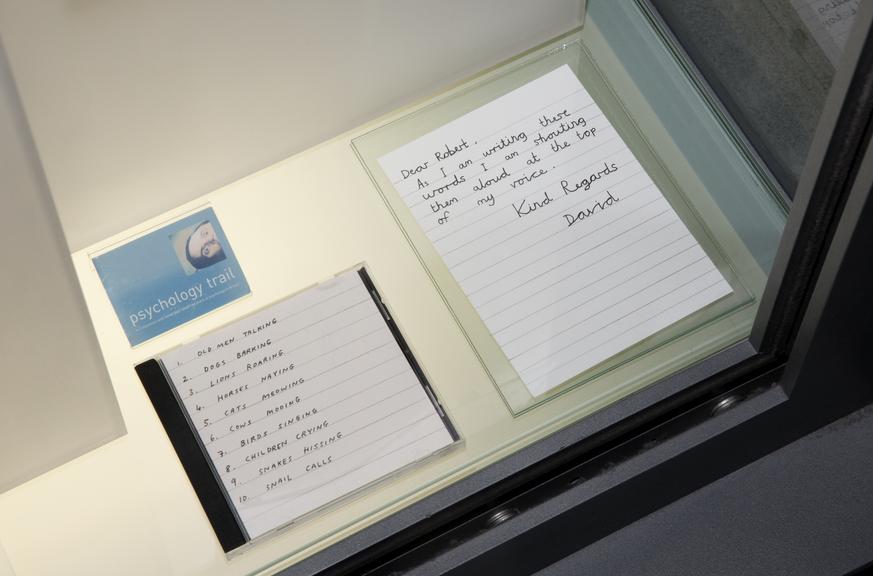 Dear Robert.
As I am writing these
words I am shouting
them aloud at the top
of my voice.
Kind Regards
David
psychology trail
1. OLD MEN TALKING
2. DOGS BARKING
3. LIONS ROARING
4. HORSES NAYING
5. CATS MEOWING
6. COWS MOOING
7. BIRDS SINGING
8. CHILDREN CRYING
9. SNAKES HISSING
10. SNAIL CALLS